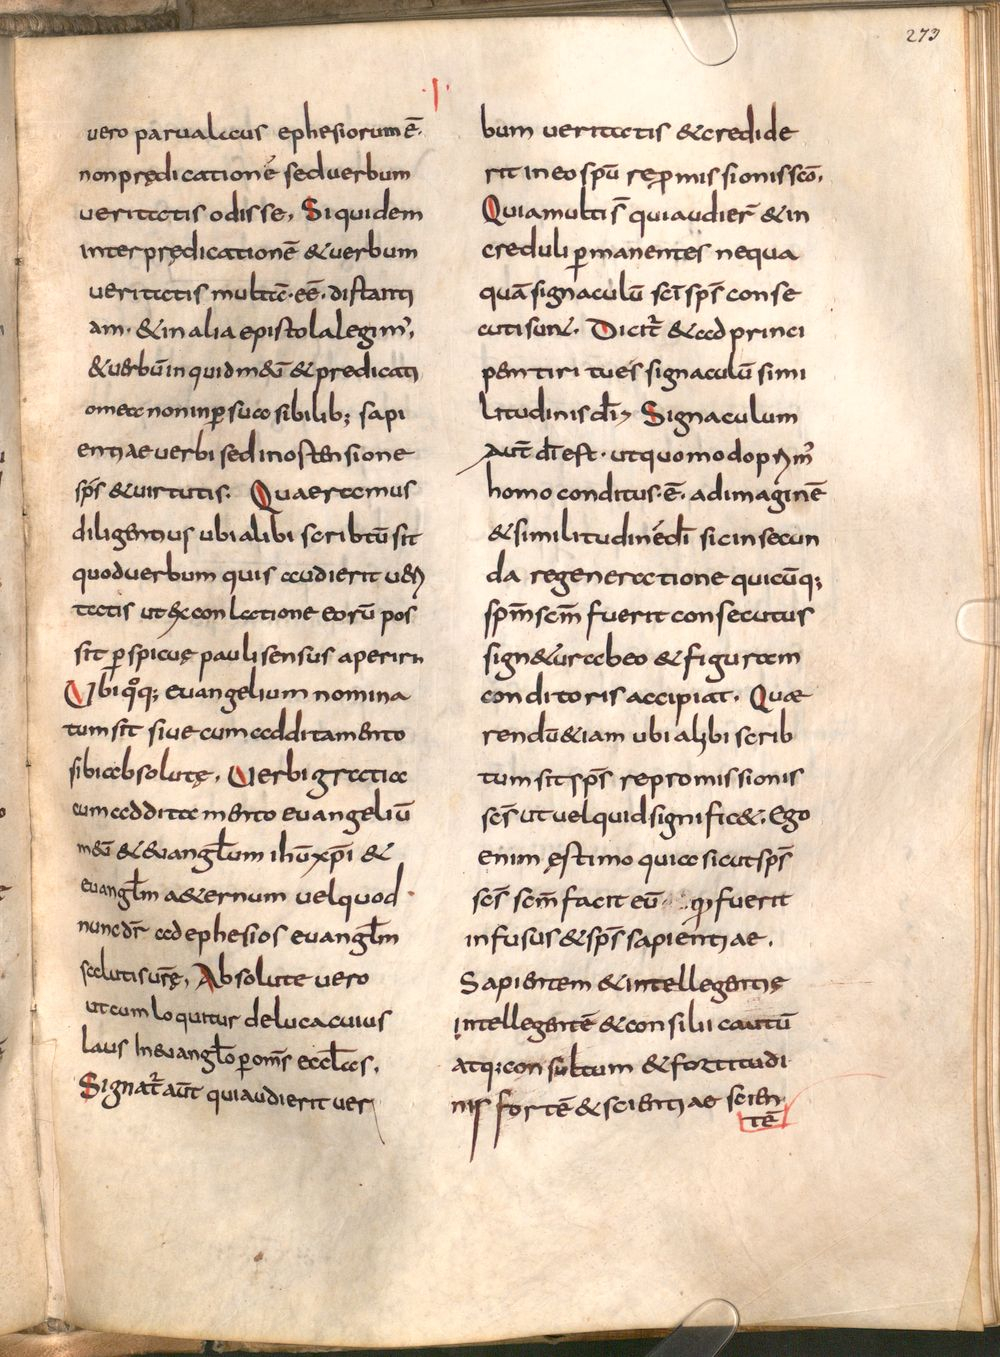 273
I
vero parva laus ephesiorum ē.
non prędicationē sed verbum
veritatis odisse, Siquidem
inter prędicationē & verbum
veritatis multā. eē. distanti
am. & in alia epistola legim',
& verbū inquid meū & predicati
o mea non in ꝑsuasibilib; sapi
entiae verbi sed in ostensione
sp̄s & virtutis. Quaeramus
diligentius ubi alibi scribtū sit
quod verbum quis audierit veri
tatis ut ex conlatione eorū pos
sit ꝑspicuę pauli sensus aperiri
Ubi qͦq; evangelium nomina
tum sit sive cum additamento
sibi absolutę, Verbi gratia
cum additamento evangeliū
meū & evangl̄ium ih̄u xp̄i &
evangl̄m aeternum vel quod
nunc dr̄ ad ephesios evangl̄m
salutis vrę, Absolute vero
ut cum loquitur de luca cuius
laus In evangl̄o ꝑ om̄s eccl̄as,
Signat̄ aūt qui audierit ver
bum veritatis & credide
rit in eo spū rep̱missionis scō,
Quia multi s̄ qui audier̄ & in
creduli ꝑmanentes nequa
quā signaculū scī sp̄s conse
cuti sunt. Dicit̄ & ad princi
pem tiri tu es signaculū simi
litudinis dī, Signaculum
aūt dī est. ut quomodo prim'
homo conditus. ē. ad imaginē
& similitudinē dī sic in secun
da regeneratione quicūq;
spm̄ scm̄ fuerit consecutus
signetur ab eo & figuram
conditoris accipiat. Quae
rendū etiam ubi alibi scrib
tum sit sp̄s repromissionis
scs̄ ut vel quid significet. Ego
enim ęstimo quia sicut sp̄s
scs̄ scm̄ facit eū qui fuerit
infusus & sp̄s sapientiae.
Sapientem & intellegentię
intellegentē & consilii cautū
atq; consultum & fortitudi
nis fortē & scientiae scien
tē